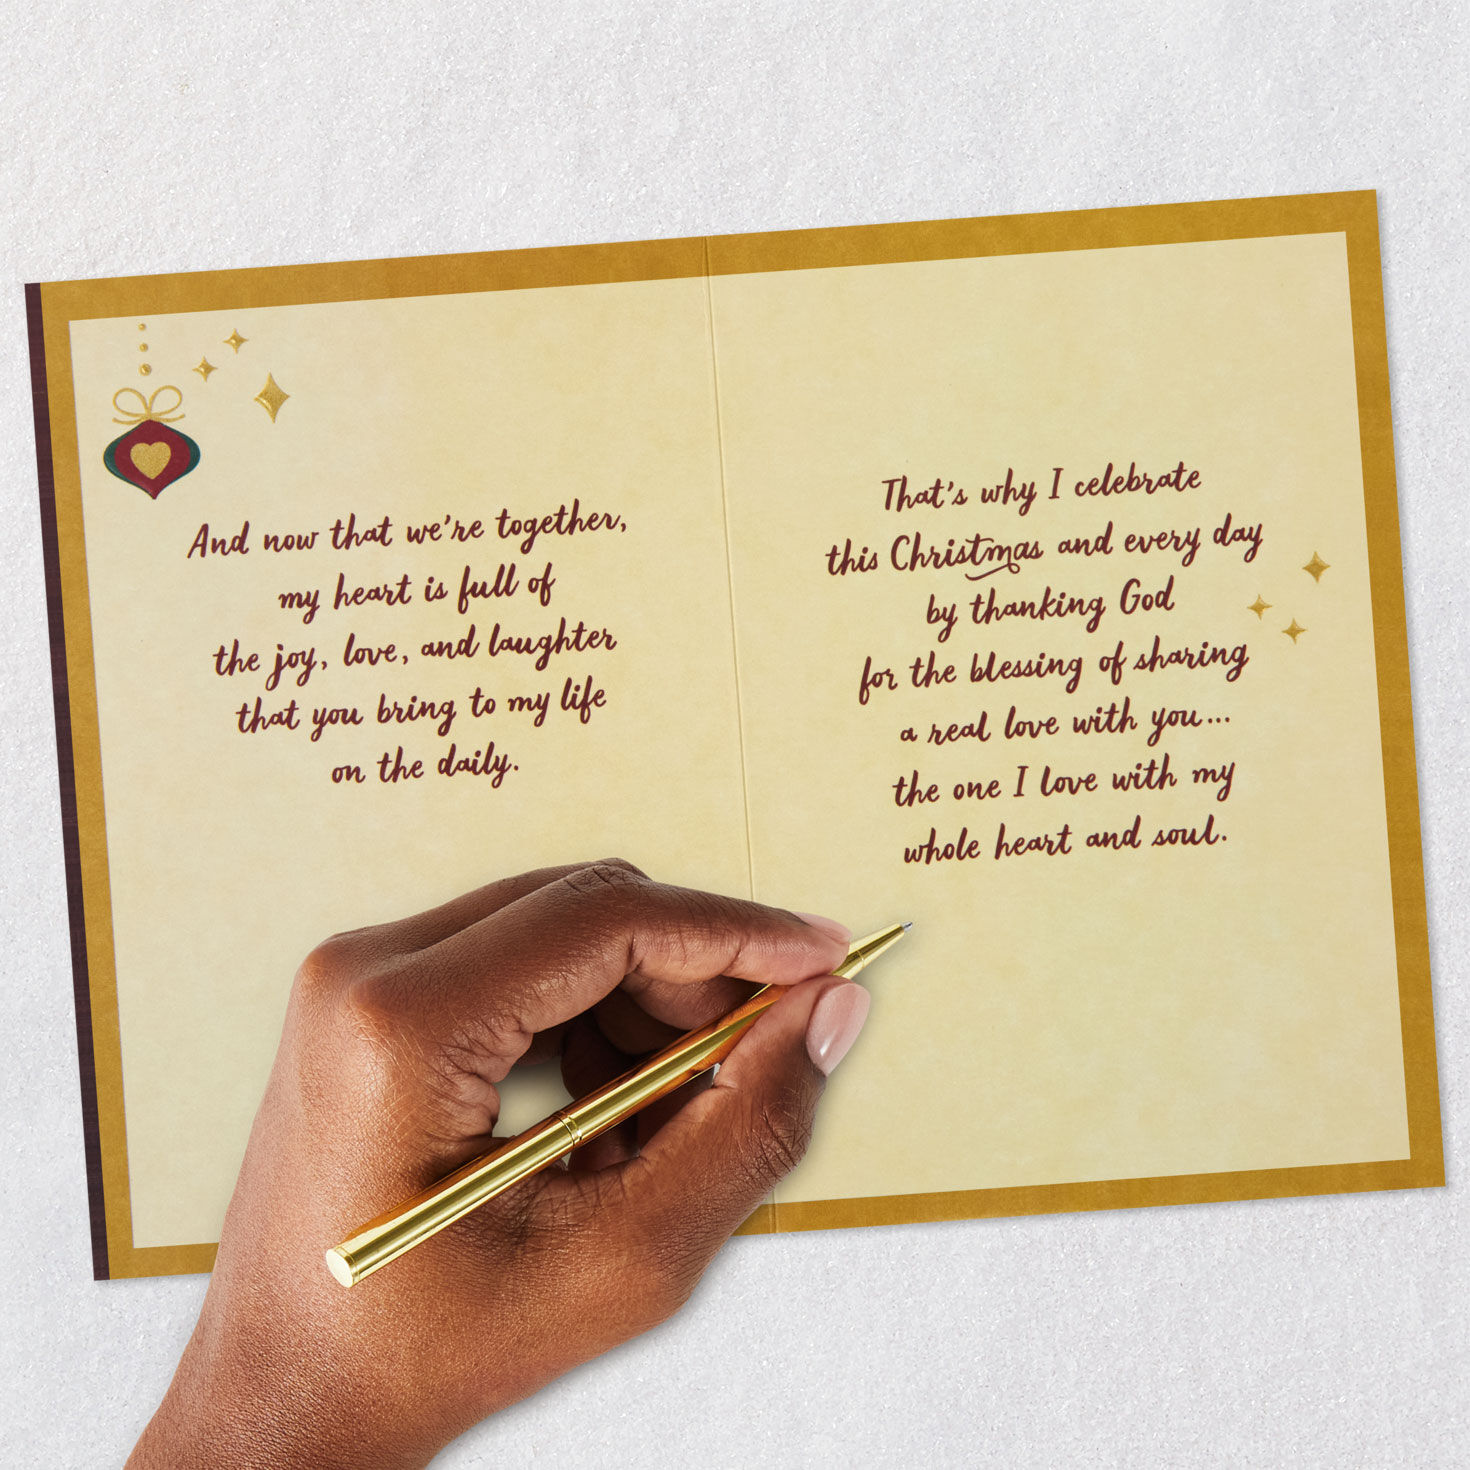 And now that we're together,
my heart is full of
the joy, love, and laughter
that you bring to my life
on the daily.
That's why I celebrate
this Christmas and every day
by thanking God
for the blessing of sharing
a real love with you...
the one I love with my
whole heart and soul.